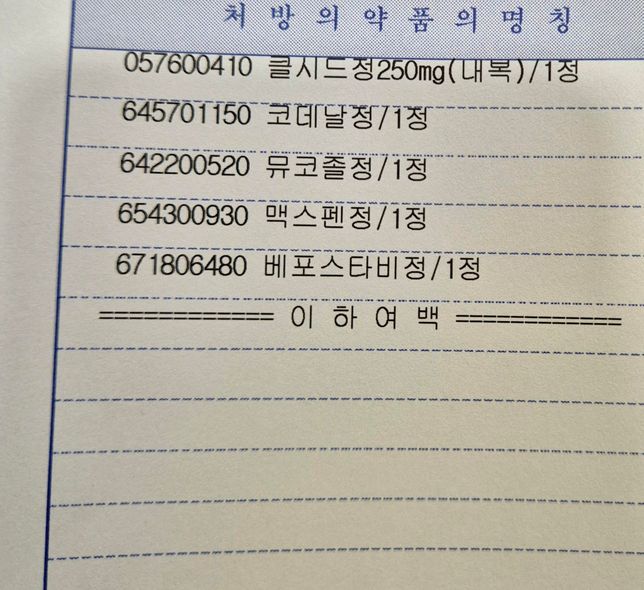 처 방 의 약 품 의 명 칭
057600410 클시드정250mg(내복)/1정
645701150 코데날정/1정
642200520 뮤코졸정/1정
654300930 맥스펜정/1정
671806480 베포스타비정/1정
============= 이 하 여 백 =============